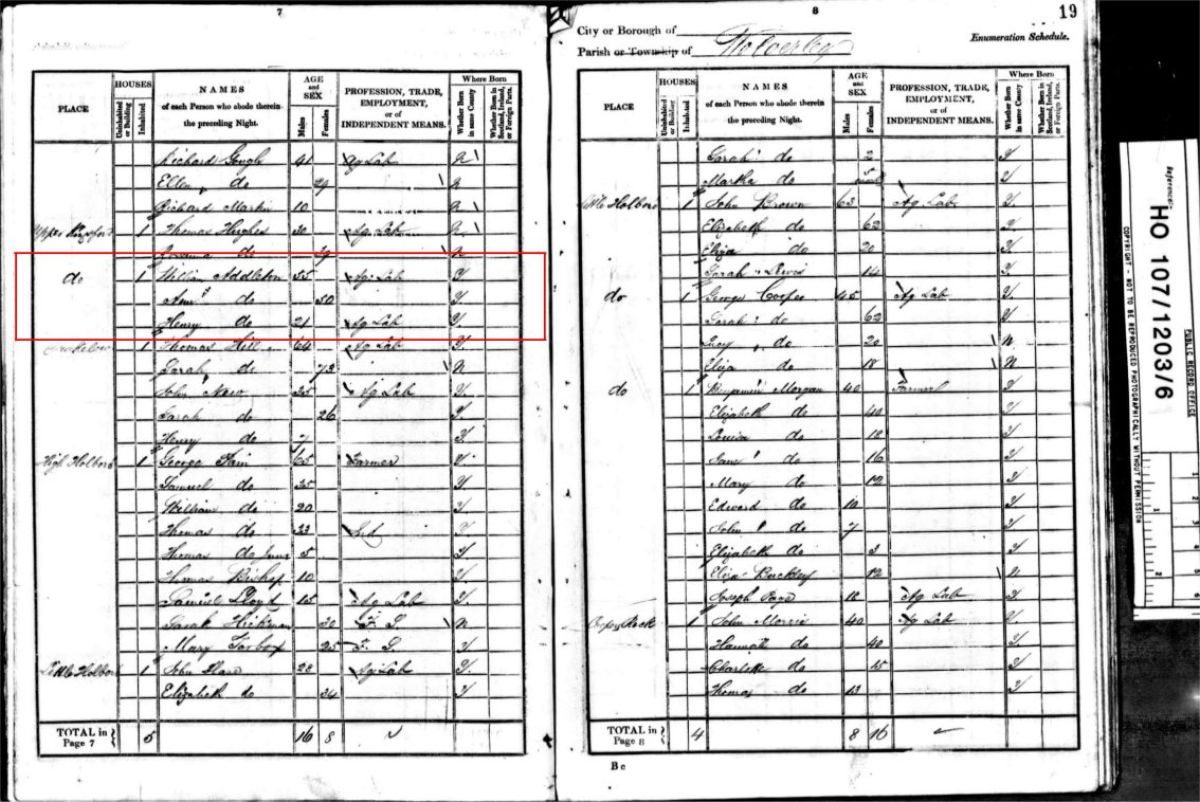 7
HOUSES
AGE and SEX
Where Born
PLACE
Uninhabited or Building
Inhabited
NAMES of each Person who abode therein the preceding Night.
Males
Females
PROFESSION, TRADE, EMPLOYMENT, or of INDEPENDENT MEANS.
Whether Born in same County
Whether Born in Scotland, Ireland, or Foreign Parts.
Richard Gough 41 Ag Lab N
Ellen do 29 N
Richard Martin 10 N
Upper 1 Thomas Hughes 30 Ag Lab N
do 29 N
do 1 William Addleton 55 Ag Lab Y
Ann do 50 Y
Henry do 21 Ag Lab Y
1 Thomas Hill 64 Ag Lab Y
Sarah do 72 N
John 35 Ag Lab Y
Sarah do 26 Y
Henry do 7 Y
High Holbor 1 George 65 Farmer Y
Samuel do 35 Y
William do 20 Y
Thomas do 33 Y
Thomas do Junr 5 Y
Thomas Bishop 10 Y
Samuel Lloyd 15 Ag Lab Y
Sarah Hickman 30 F S N
Mary 25 F S Y
Little Holbor 1 John 28 Ag Lab Y
Elizabeth do 34 Y
TOTAL in Page 7 5 16 8
8
19
City or Borough of
Parish or Township of Wolverley
Enumeration Schedule.
HOUSES
AGE and SEX
Where Born
PLACE
Uninhabited or Building
Inhabited
NAMES of each Person who abode therein the preceding Night.
Males
Females
PROFESSION, TRADE, EMPLOYMENT, or of INDEPENDENT MEANS.
Whether Born in same County
Whether Born in Scotland, Ireland, or Foreign Parts.
Sarah do 2 Y
Martha do 5 Y
Little Holbor 1 John Brown 63 Ag Lab Y
Elizabeth do 62 Y
Eliza do 20 Y
Sarah Lewis 14 Y
do 1 George Cooper 45 Ag Lab Y
Sarah do 62 Y
Lucy do 20 N
Eliza do 18 N
do 1 Benjamin Morgan 40 Farmer Y
Elizabeth do 40 Y
Louisa do 18 Y
Jane do 16 Y
Mary do 12 Y
Edward do 10 Y
John do 7 Y
Elizabeth do 3 Y
Eliza Buckley 12 N
Joseph Page 18 Ag Lab Y
Rock 1 John Morris 40 Ag Lab Y
Hannah do 40 Y
Charlotte do 15 Y
Thomas do 13 Y
TOTAL in Page 8 4 8 16
B c
Reference:-
HO 107/1203/6
PUBLIC RECORD OFFICE
COPYRIGHT - NOT TO BE REPRODUCED PHOTOGRAPHICALLY WITHOUT PERMISSION
1
2